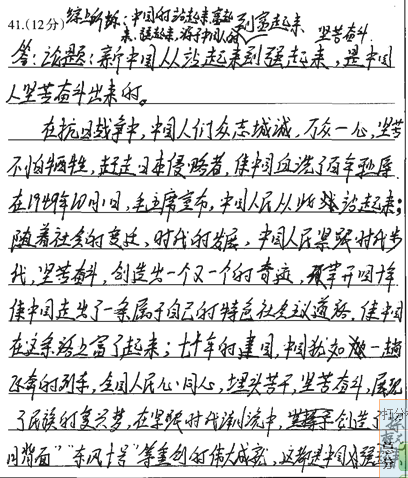 41.(12分) 综上所述:中国的站起来、富起来、强起来,源于中国人的坚苦奋斗.
答:论题:新中国从站起来到富起来到强起来,是中国
人坚苦奋斗出来的。
在抗日战争中,中国人们众志城诚,万众一心,坚苦
不怕牺牲,赶走日本侵略者,使中国血洗了百年耻辱.
在1949年10月1日,毛主席宣布,中国人民从此站起来;
随着社会的变迁,时代的发展,中国人民紧跟时代步
伐,坚苦奋斗,创造出一个又一个的奇迹,改革开放四十年
使中国走出了一条属于自己的特色社会主义道路,使中国
在这条路上富了起来;七十年的建国,中国犹如一趟
飞奔的列车,全国人民心同心,埋头苦干,坚苦奋斗,展现
了民族的复兴梦,在紧跟时代潮流中,创造了
月背面”“东风十号”等重创的伟大成就,这都是中国人强起来